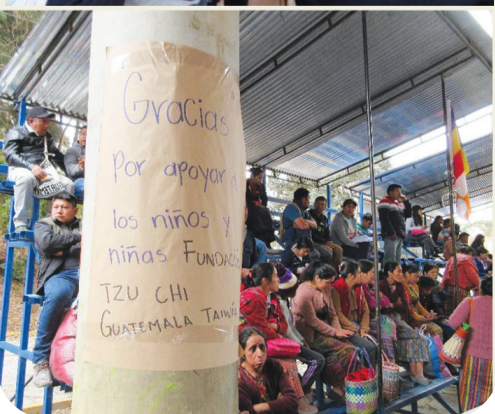 Gracias
Por apoyar a
los niños y
niñas FUNDACIÓ
TZU CHI
GUATEMALA TAIWÁN